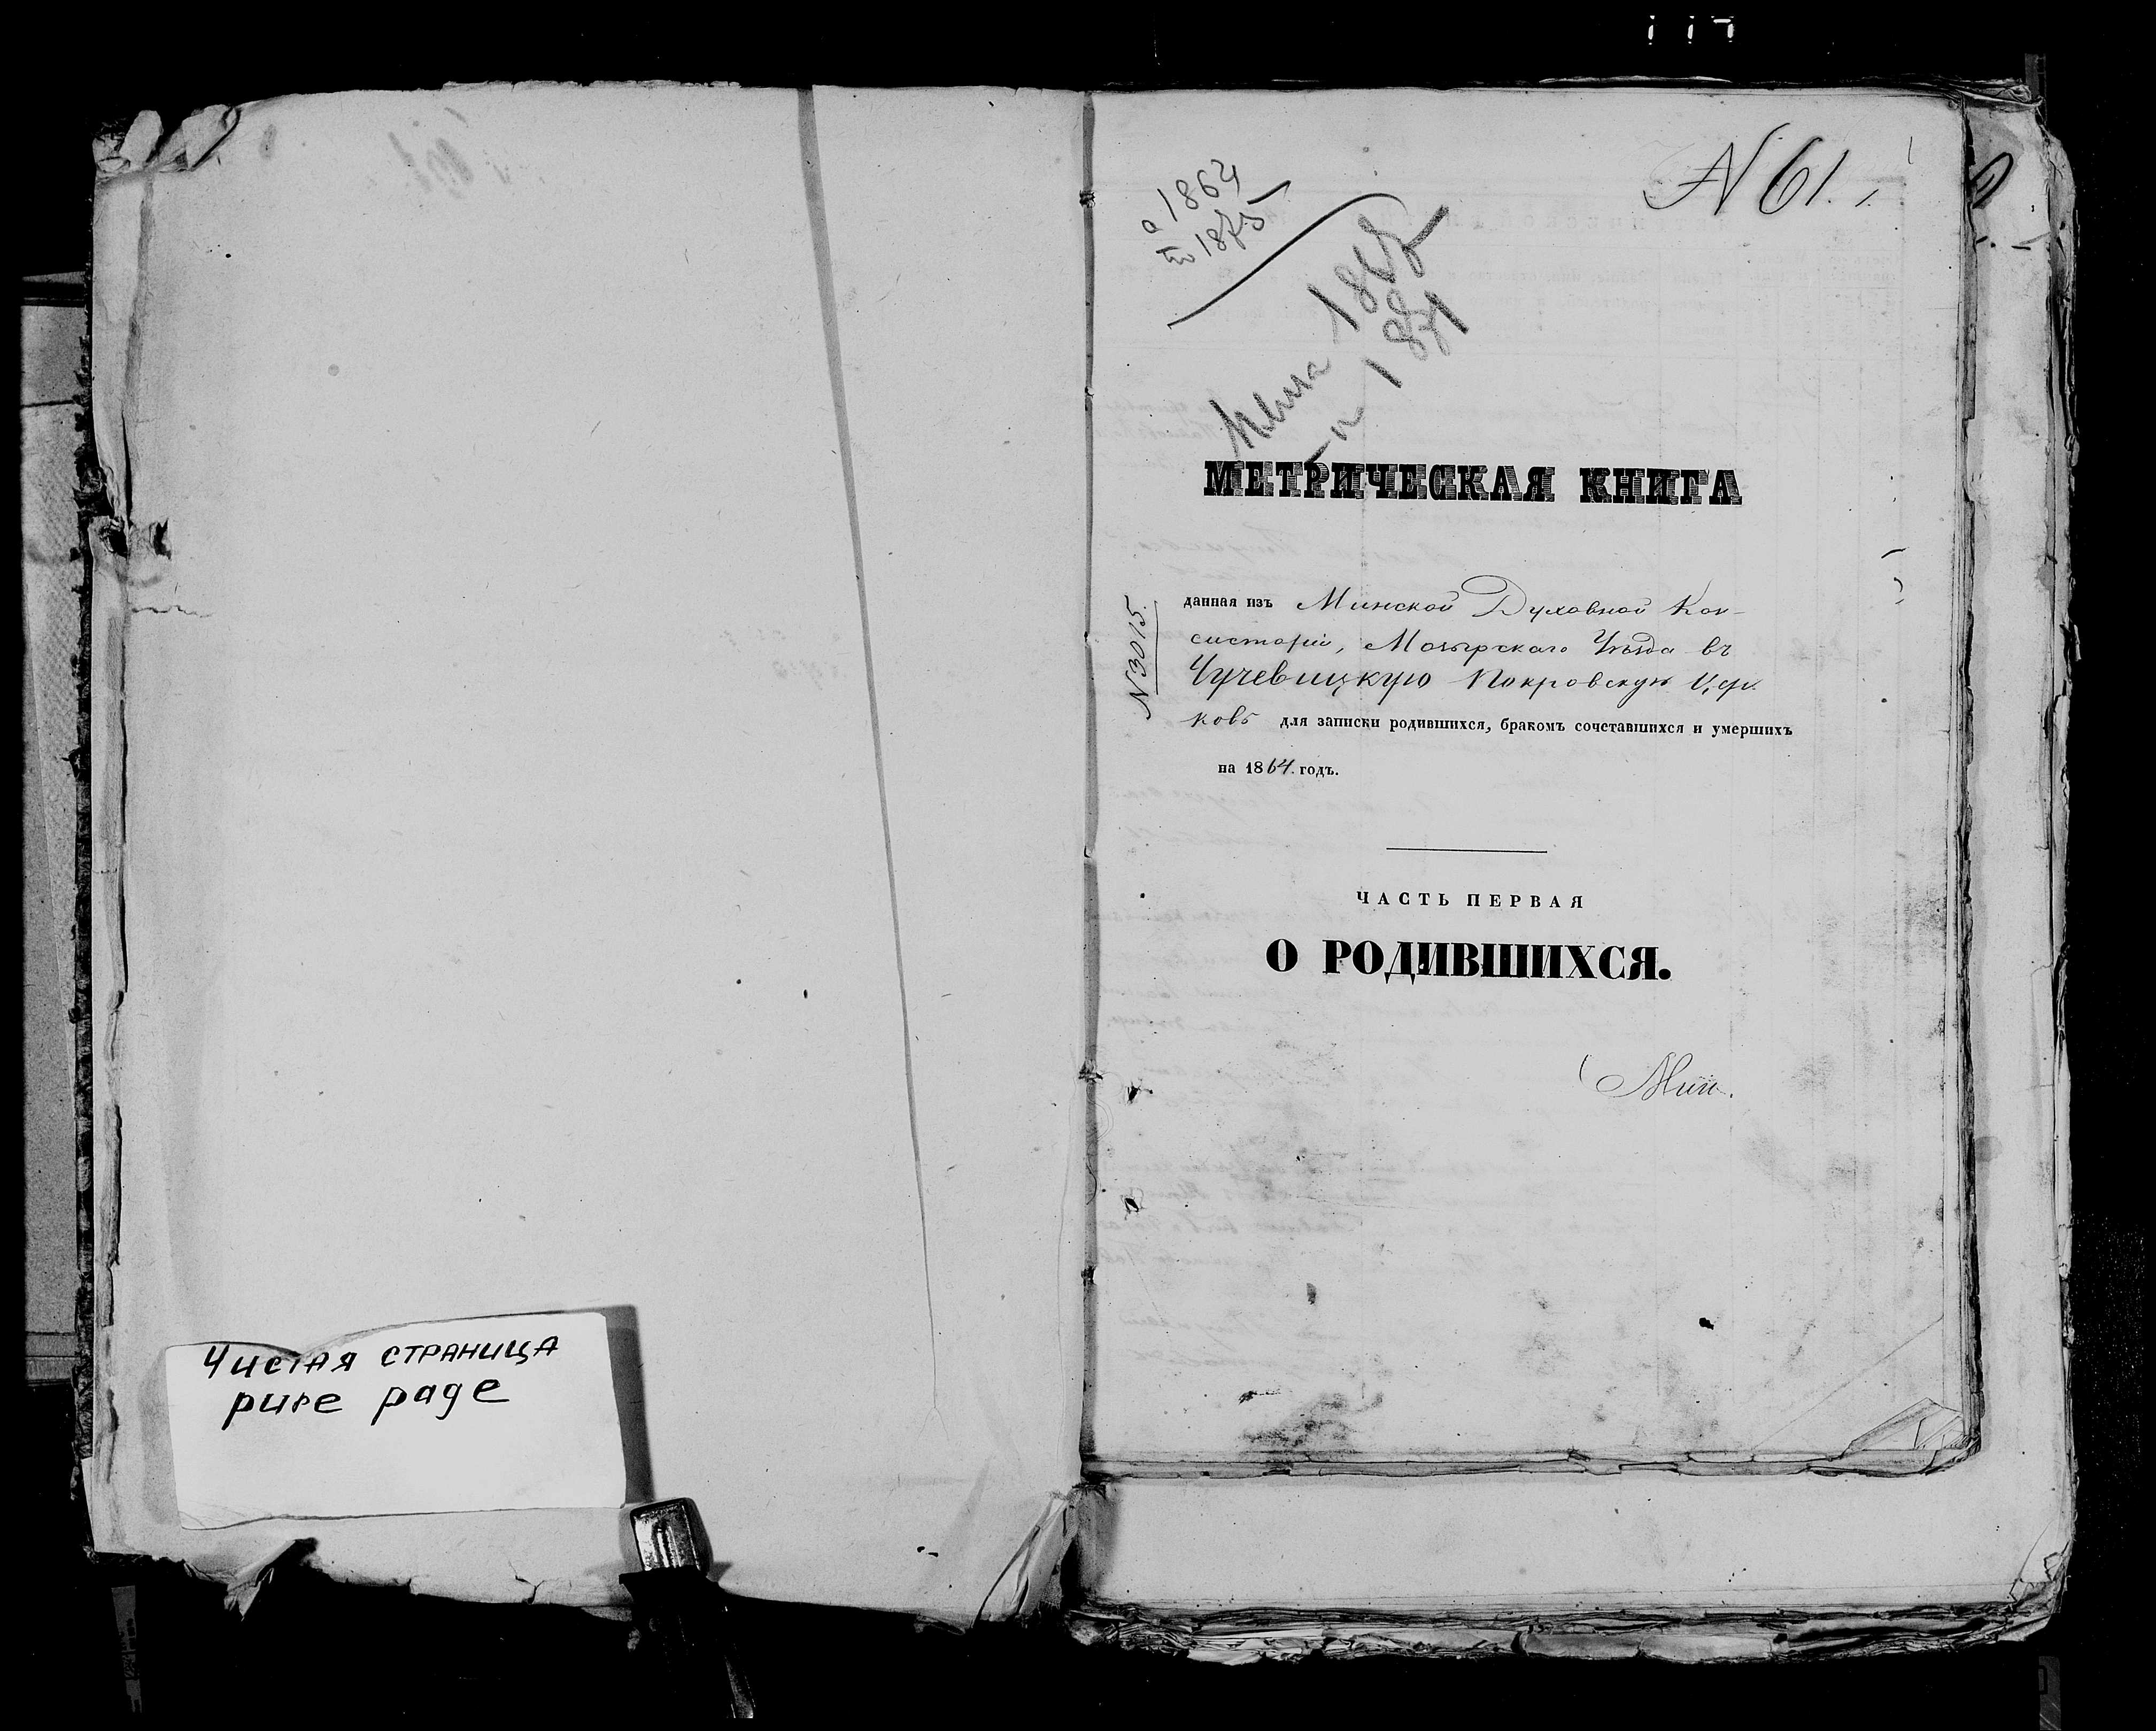 Чистая страница
pure page
N 61.
с 1864
по 1875
нѣта 1867
и 1871
МЕТРИЧЕСКАЯ КНИГА
N 3015.
данная изъ Минской Духовной Кон-
систоріи, Мозырскаго Уѣзда въ
Чучевицкую Покровскую Цер-
ковь для записки родившихся, бракомъ сочетавшихся и умершихъ
на 1864. годъ.
ЧАСТЬ ПЕРВАЯ
О РОДИВШИХСЯ.